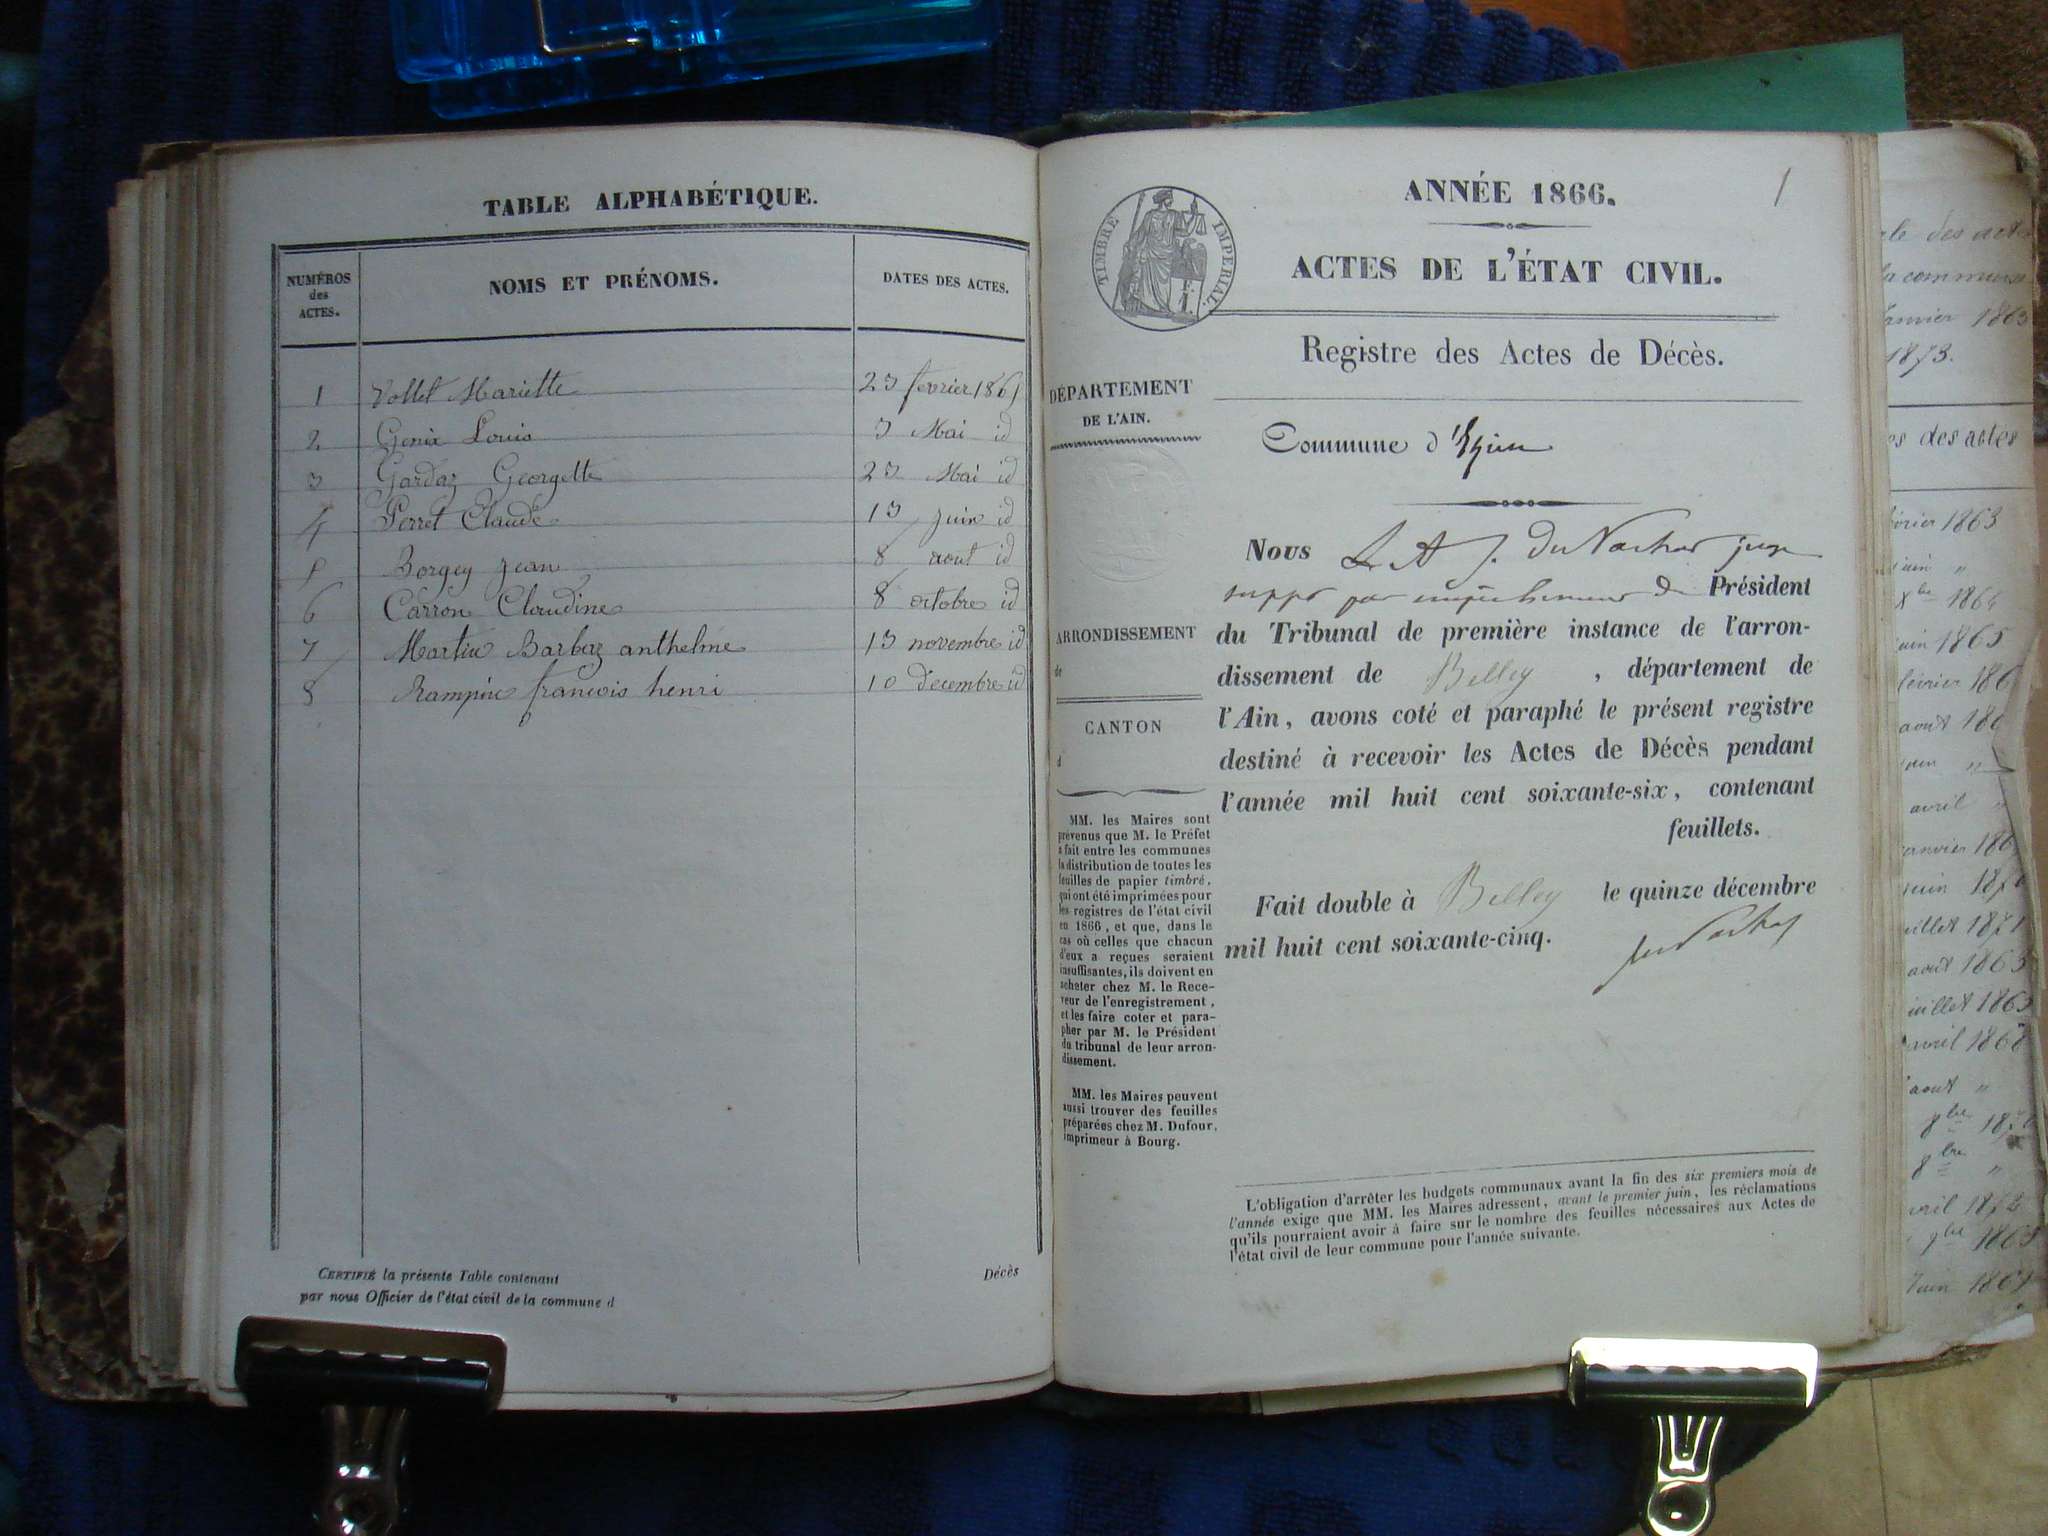 TABLE ALPHABÉTIQUE.
NUMÉROS des ACTES.
NOMS ET PRÉNOMS.
DATES DES ACTES.
1 Vollet Mariette 23 fevrier 1865
2 Genix Louis 3 Mai id
3 Gardaz Georgette 23 Mai id
4 Perret Claude 13 juin id
5 Borgey jean 8 aout id
6 Carron Claudine 8 octobre id
7 Martin Barbaz anthelme 13 novembre id
8 Rampin francois henri 10 decembre id
CERTIFIÉ la présente Table contenant
par nous Officier de l'état civil de la commune d
Décès
1
TIMBRE IMPÉRIAL.
ANNÉE 1866.
ACTES DE L'ÉTAT CIVIL.
Registre des Actes de Décès.
DÉPARTEMENT
DE L'AIN.
Commune d'
Nous L. A J. Du Nachar juge
supp par empêchement de Président
du Tribunal de première instance de l'arron-
dissement de Belley, département de
l'Ain, avons coté et paraphé le présent registre
destiné à recevoir les Actes de Décès pendant
l'année mil huit cent soixante-six, contenant
feuillets.
Fait double à Belley le quinze décembre
mil huit cent soixante-cinq.
ARRONDISSEMENT
de
CANTON
d
MM. les Maires sont
prévenus que M. le Préfet
a fait entre les communes
la distribution de toutes les
feuilles de papier timbré,
qui ont été imprimées pour
les registres de l'état civil
en 1866, et que, dans le
cas où celles que chacun
d'eux a reçues seraient
insuffisantes, ils doivent en
acheter chez M. le Rece-
veur de l'enregistrement,
et les faire coter et para-
pher par M. le Président
du tribunal de leur arron-
dissement.
MM. les Maires peuvent
aussi trouver des feuilles
préparées chez M. Dufour,
imprimeur à Bourg.
L'obligation d'arrêter les budgets communaux avant la fin des six premiers mois de
l'année exige que MM. les Maires adressent, avant le premier juin, les réclamations
qu'ils pourraient avoir à faire sur le nombre des feuilles nécessaires aux Actes de
l'état civil de leur commune pour l'année suivante.
des act
la commune
janvier 1863
1873.
des actes
février 1863
juin "
Xbre 1864
juin 1865
février 186
aout 186
juin "
avril "
janvier 186
juin 187
juillet 1871
aout 1863
juillet 1863
avril 1868
aout "
8bre "
avril 1872
Juin 1867